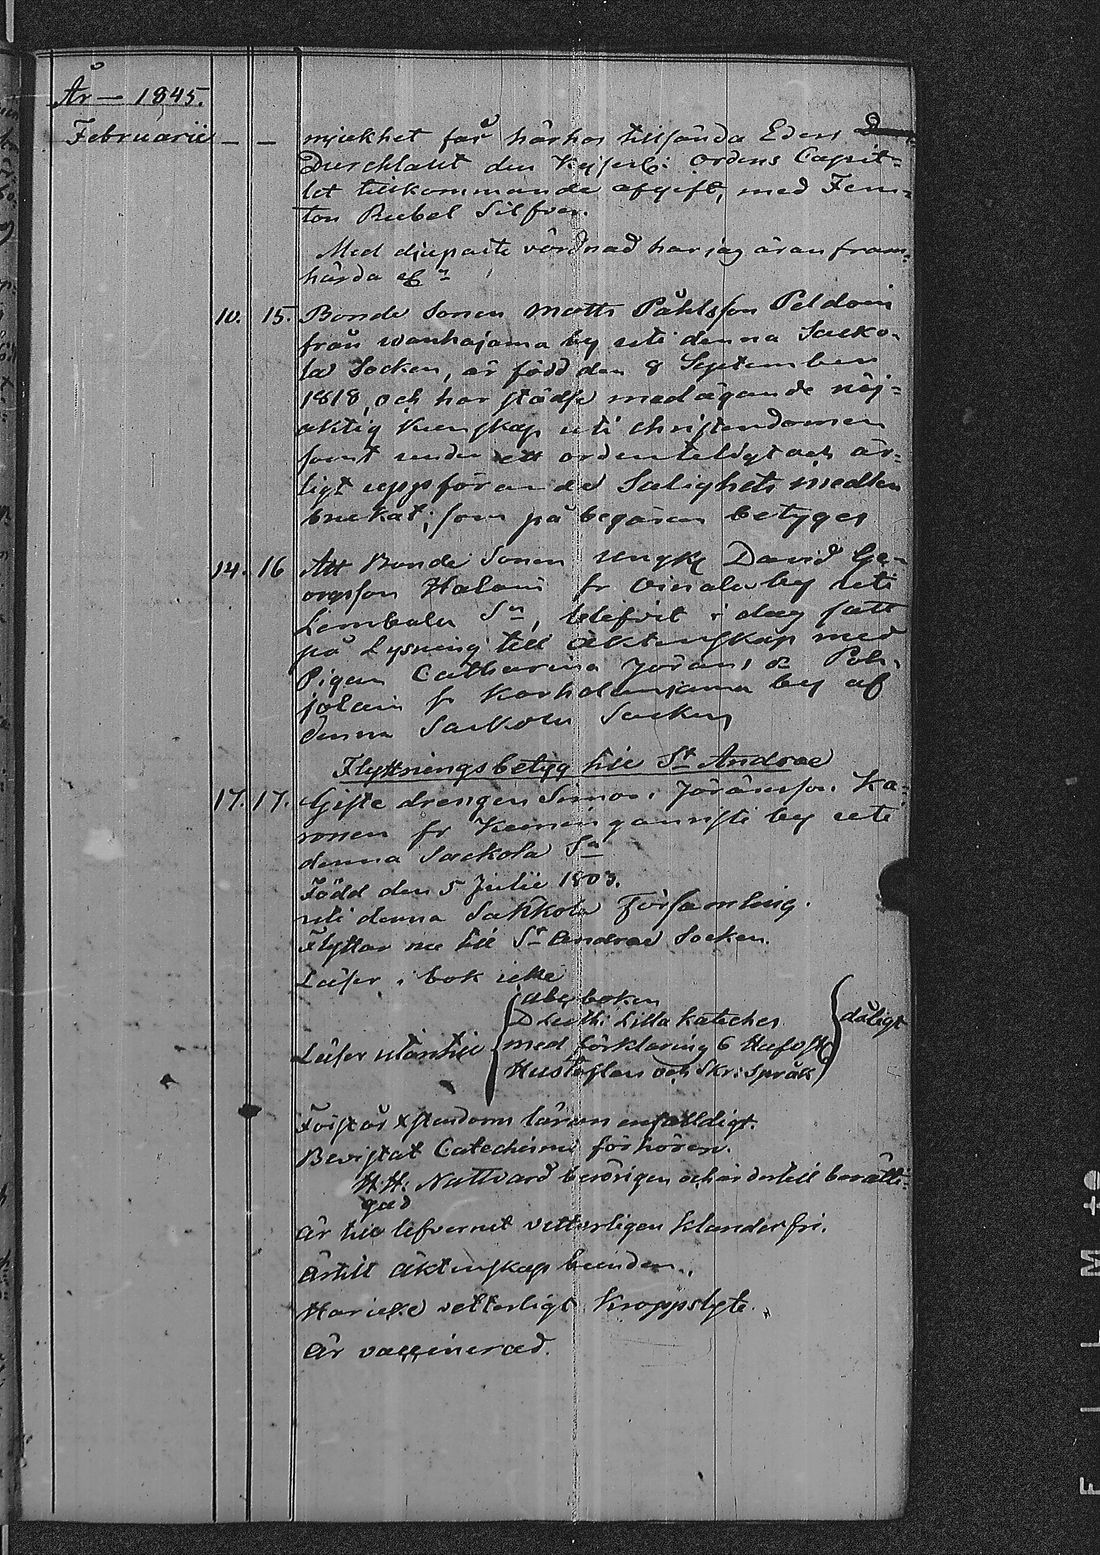 År — 1845.
Februarii — — mjukhet får härhos tillsända Eders
Durchlaut den Kejserl: Ordens Capit-
let tillkommande afgift, med Fem-
ton Rubel Silfver.
Med djupaste vördnad har jag äran fram-
härda
10. 15. Bonde Sonen Matts Påhlsson Peldoin
från wanhajama by uti denna Sacko-
la Socken, är född den 8 September
1818, och har städse med ägande nöj-
aktig kunskap uti christendomen
samt under ett ordenteligt och är-
ligt uppförande Salighets medlen
brukat; som på begäran betyges
14. 16 Att Bonde Sonen Ungk David Ge-
orgsson Haloin fr Oinala by uti
Lembala Sn, blifvit i dag satt
på Lysning till äktenskap med
Pigan Catharina Jörans dr Poh-
jolain fr Karholanjama by af
denna Sackola Socken
Flyttningsbetyg till St Andrae
17. 17. Gifte drengen Simon Jöransson Ka-
ronen fr by uti
denna Sackola Sn
Född den 5 Julii 1803.
uti denna Sakkola Församling.
Flyttar nu till St Andrae Socken.
Läser i bok icke
Läser utantill
abc boken
D Luth: Lilla Kateches
med förklaring 6 Hufvst
Hustaflan och Skr: språk
dåligt
Förstår Xstendoms läran enfalldigt.
Bevistat Catechismi förhören.
H.H. Nattvard berörigen och är dertill berätti-
gad
Är till lefvernet vetterligen klanderfri.
Är till äktenskap bunden.
Har icke vetterligt Kroppslyte.
Är vaccinerad.
F I L M t